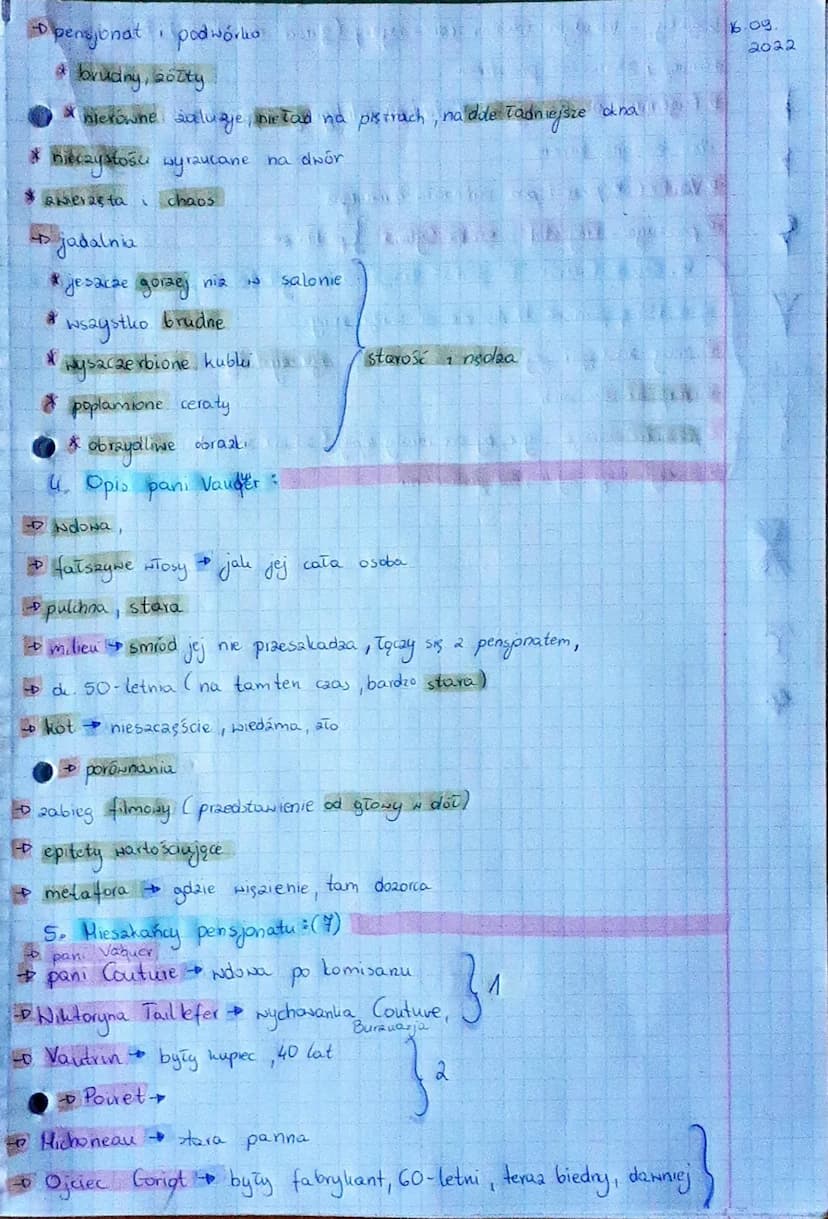 16.09.
2022
→ pensjonat i podwórko
* brudny, żółty
* nierówne żaluzje, nieład na piętrach, na dole ładniejsze okna
* nieczystości wyrzucane na dwór
* zwierzęta i chaos
→ jadalnia
* jeszcze gorzej niż w salonie
* wszystko brudne
* wyszczerbione kubki
* poplamione ceraty
* obrzydliwe obrazki
starość i nędza
4. Opis pani Vauqer:
→ wdowa,
→ fałszywe włosy → jak jej cała osoba
→ pulchna, stara
→ milieu → smród jej nie przeszkadza, łączy się z pensjonatem,
→ ok. 50-letnia (na tamten czas, bardzo stara)
→ kot → nieszczęście, wiedźma, zło
→ porównania
→ zabieg filmowy (przedstawienie od głowy w dół)
→ epitety wartościujące
→ metafora → gdzie więzienie, tam dozorca
5. Mieszkańcy pensjonatu: (7)
→ pani Vaquer
→ pani Couture → wdowa po komisarzu
→ Wiktoryna Taillefer → wychowanka Couture,
} 1
Burżuazja
→ Vautrin → były kupiec, 40 lat
→ Poiret →
} 2
→ Michoneau → stara panna
→ Ojciec Goriot → były fabrykant, 60-letni, teraz biedny, dawniej }